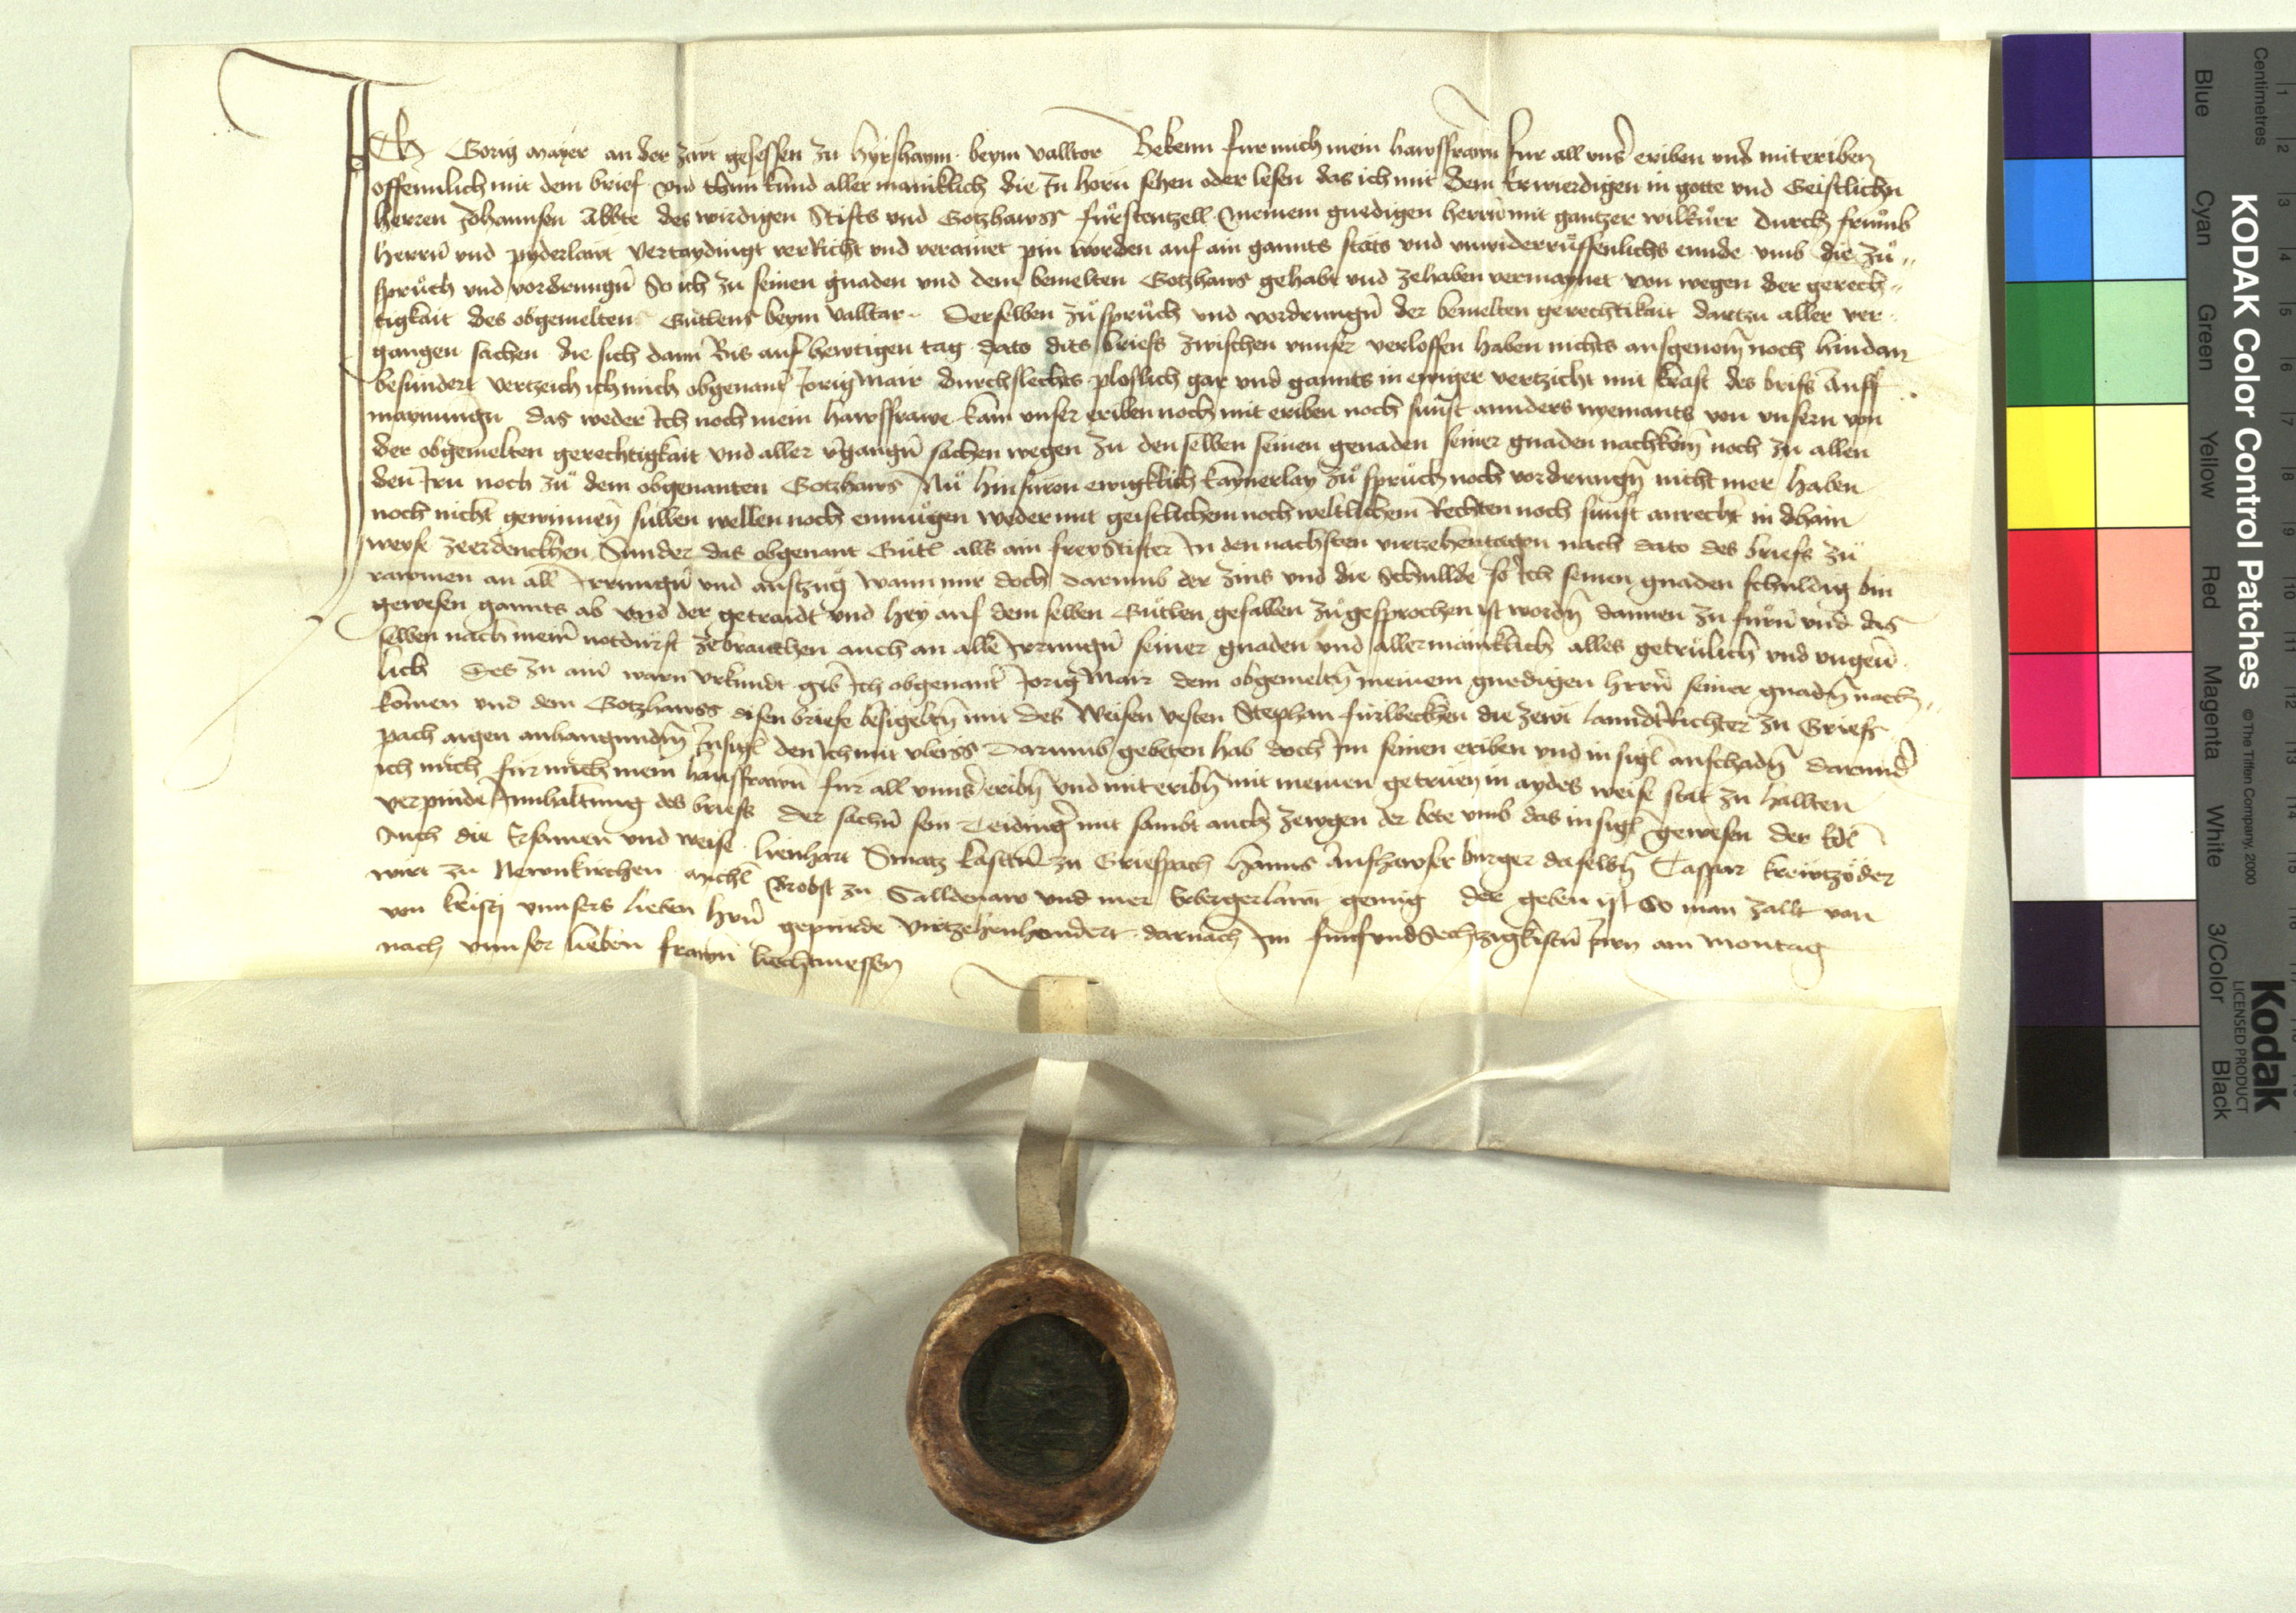 Ich Gorig mayer an der zeit gesessen zu hyrshaym beym valltor Bekenn fur mich mein hawsfrawn fur all vnser eriben vnd miteriben
offennlich mit dem brief vnd thun kund aller mäniklich die In horn sehen oder lesen das ich mit dem Erwierdigen in gotte vnd Geistlichn
herren Johannsen Abbte des wirdigen Stifts vnd Gotzhawss fürstentzell meinem gnedigen herrn mit gantzer wilkürr durch frümb
herrn vnd pyderlawt vertaydingt verRicht vnd verainet pin worden auf ain gannts stäts vnd vnwiderrüffenlichs ennde vmb die zü„
sprüch vnd vordrungn So ich zu seinen gnaden vnd dem bemelten Gotzhaws gehabt vnd zehaben vermaynet von wegen der gerech„
tigkait des obgemelten Gütlens beym valltar Derselben züsprüch vnd vordrungn der bemelten gerechtikait dartzu aller ver
gangen sachen die sich dann Bis auf hewtigen tag dato dits briefs zwischen vnnser verloffen haben nichts ausgenom noch hindan
besundert vertzeich ich mich obgenant Jorig Mair durchslechts ploslich gar vnd gannts in ewiger vertzicht mit kraft des brifs Auff
maynungn das weder Ich noch mein hawsfrawe kain vnser eriben noch mit eriben noch sunst annders nyemants von vnsern von
der obgemelten gerechtigkait vnd aller vgangn sachen wegen zu denselben seinen genaden seiner gnaden nachkom noch zu allen
den Irn noch zü dem obgenanten Gotzhaws Nü hinfüron ewigklich kaynerlay züsprüch noch vordrungn nicht mer haben
noch nicht gewinnen sullen wellen noch enmügen weder mit geistlichem noch weltlichem Rechten noch sunst anrecht in dhain
weyse zeerdenckhen Sunder das obgenant Gütl alls ain freystifter In den nachsten virtzehentagen nach dato des briefs zü
rawmen an all Irrungn vnd aufzug wann mir doch darumb der zins vnd die schullde so Ich seinen gnaden schuldig bin
gewesen gannts ab vnd der getraidt vnd hey auf dem selben Gütlen gefallen zügesprochen ist wordn dannen zu fürn vnd das
selben nach meinr notdurft zebrauchen auch an alle Irrungn seiner gnaden vnd allermaincklich alles getrülich vnd vngeur
lich Des zu ainr warn vrkundt gib Ich obgenant Jorig Mair dem obgemeltn meinem gnedigen hrrn seiner gnadn nach„
komen vnd dem Gotzhawss disen briefe besigeltn mit des Weisen vesten Stephan fürlbeckhen die zewt lanndtRichter zu Gries
pach aigen anhangundm Insigl den Ich mit vleiss darumb gebeten hab doch Im seinen eriben vnd insigl anschadn darundr
ich mich für mich mein hausfrawn für all vnnser eribn vnd miteribn mit meinen getruen in aydes weise stat zu hallten
verpinde Innhaltung des briefs der sachn sein Teidinger mit sambt auch zewgen der bete vmb das insigl gewesen der Edl
Auch die Ersamen vnd weise lienhart Smatz kasttner zu Griespach hanns Aufhawser burger daselbn Caspar kreutzöder
wirt zu Newnkirchen Michl Brobst zu Salldenaw vnd mer Erbergerlawt genug der geben ist So man zallt von
von kristj vnnsers lieben hrn gepurde virtzehenhundert darnach Im fünfvndSechtzigkistn Jarn am Montag
nach vnnser lieben frawn liechtmessen
KODAK Color Control Patches © The Tiffen Company, 2000
Kodak LICENSED PRODUCT
Centimetres
Blue Cyan Green Yellow Red Magenta White 3/Color Black